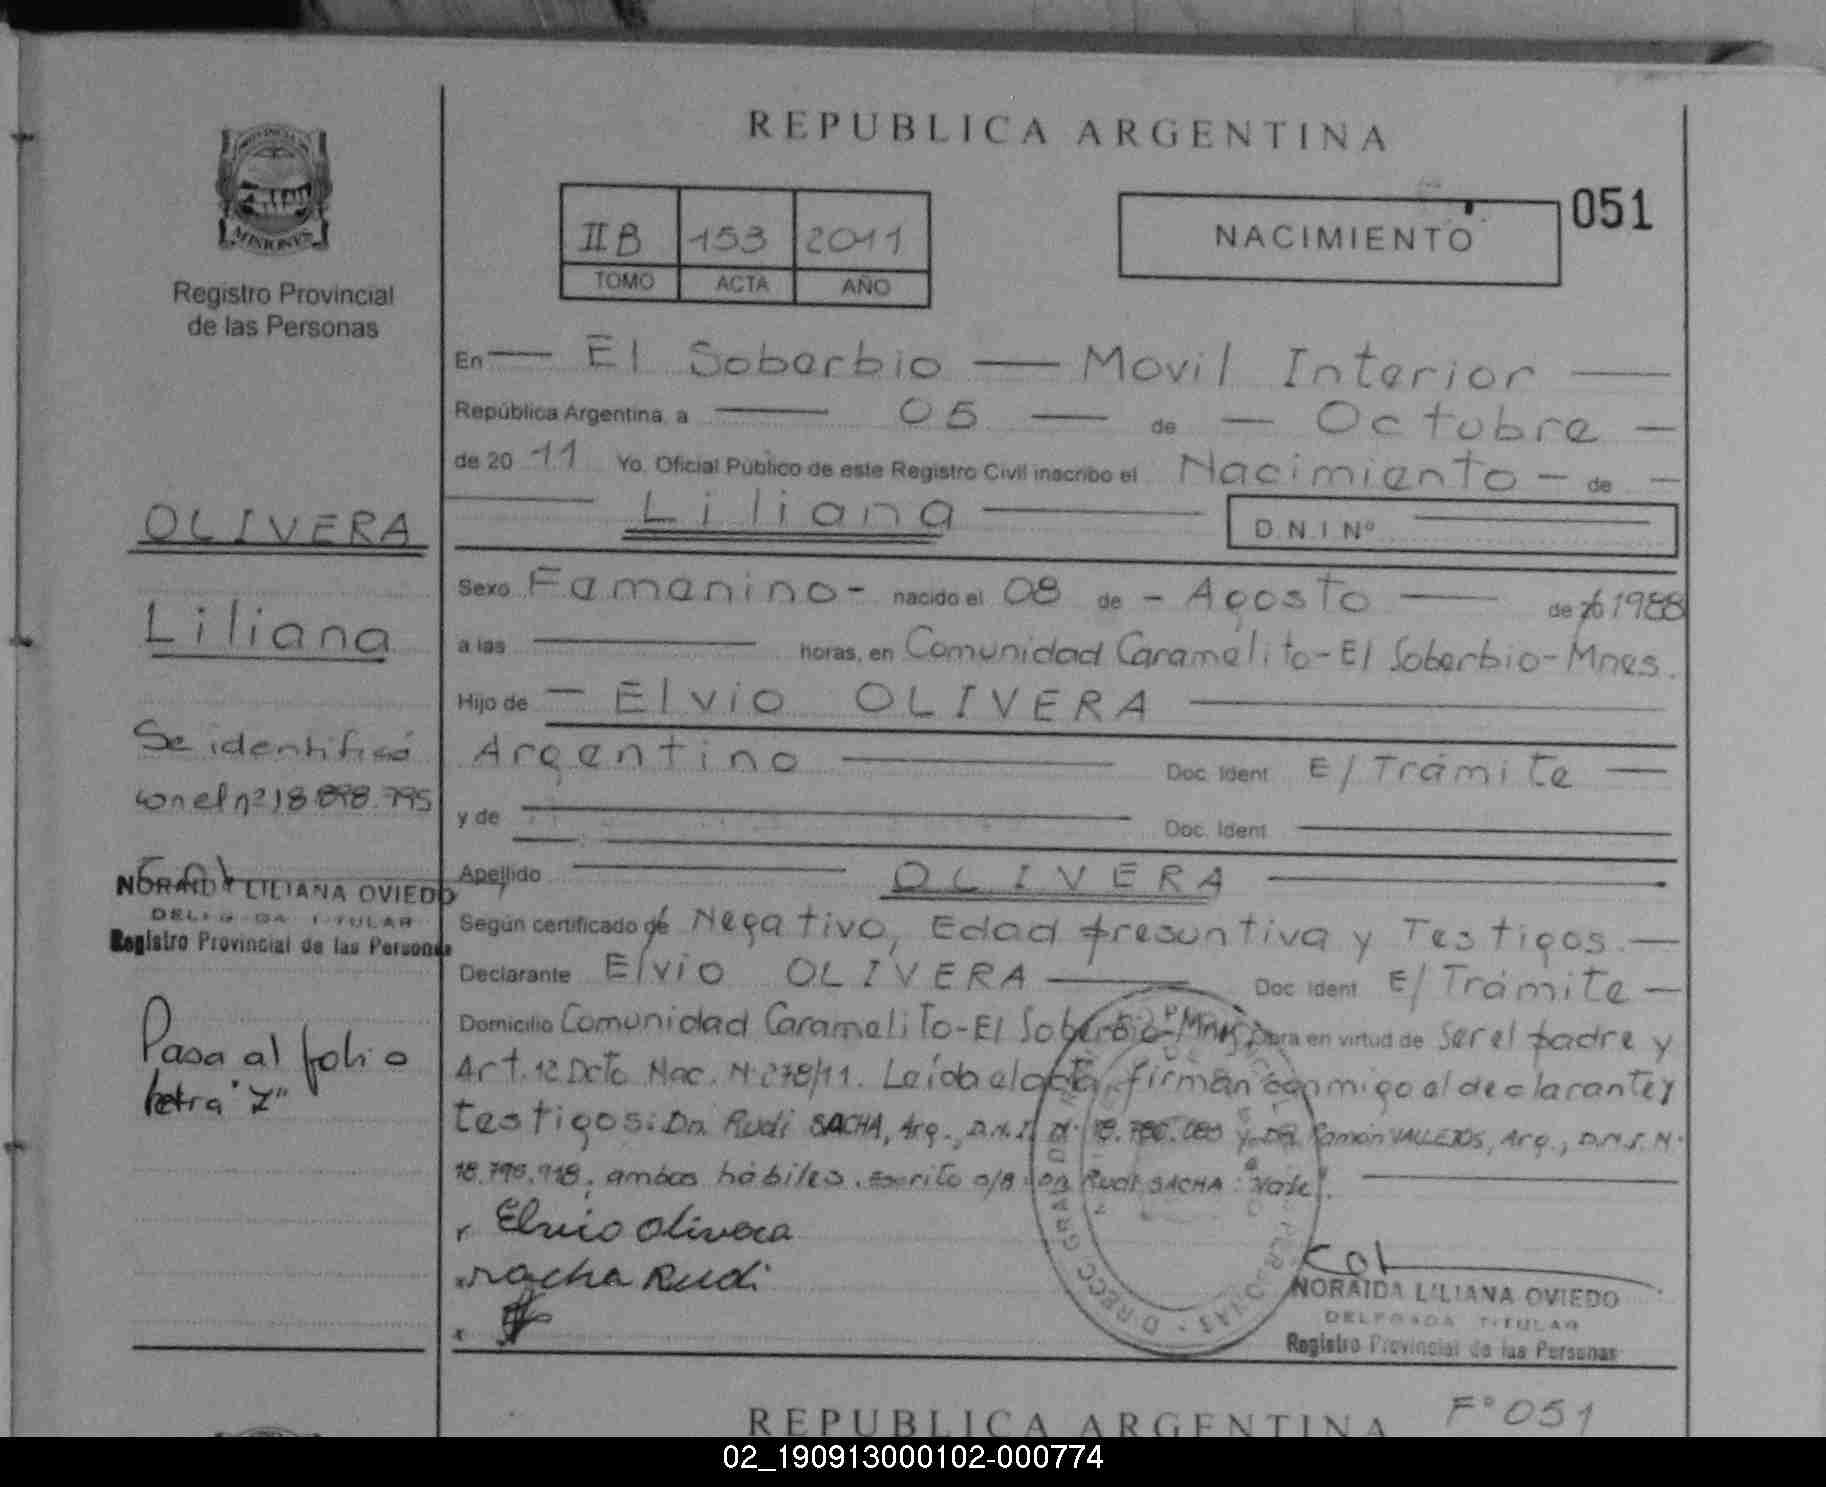 REPUBLICA ARGENTINA
PROVINCIA DE
MISIONES
Registro Provincial
de las Personas
II B 153 2011
TOMO ACTA AÑO
NACIMIENTO
051
En — El Soberbio — Movil Interior —
República Argentina, a — 05 — de — Octubre —
de 20 11 Yo, Oficial Público de este Registro Civil inscribo el Nacimiento — de —
— Liliana — D.N.I Nº —
Sexo Femenino - nacido el 08 de - Agosto — de 1988
a las — horas, en Comunidad Caramelito - El Soberbio - Mnes.
Hijo de — Elvio OLIVERA —
Argentino — Doc. Ident. E/Trámite —
y de — Doc. Ident. —
Apellido — OLIVERA —
Según certificado de Negativo, Edad presuntiva y Testigos. —
Declarante Elvio OLIVERA — Doc. Ident. E/Trámite —
Domicilio Comunidad Caramelito - El Soberbio - Mnes. obra en virtud de Ser el padre y
Art. 12 Dcto Nac. N. 278/11. Leída el acta, firman conmigo el declarante y
testigos: Dn. Rudi SACHA, Arg., D.N.I. N. 18.780.080 y Dn. Ramón VALLEJOS, Arg., D.N.I. N.
18.798.918, ambos hábiles. escrito s/B: Dn Rudi SACHA: Vale.
Elvio Olivera
sacha Rudi
NORAIDA LILIANA OVIEDO
DELEGADA TITULAR
Registro Provincial de las Personas
OLIVERA
Liliana
Se identificó
con el nº 18.898.795
NORAIDA LILIANA OVIEDO
DELEGADA TITULAR
Registro Provincial de las Personas
Pasa al folio
letra "Z"
Fº 051
REPUBLICA ARGENTINA
02_190913000102-000774